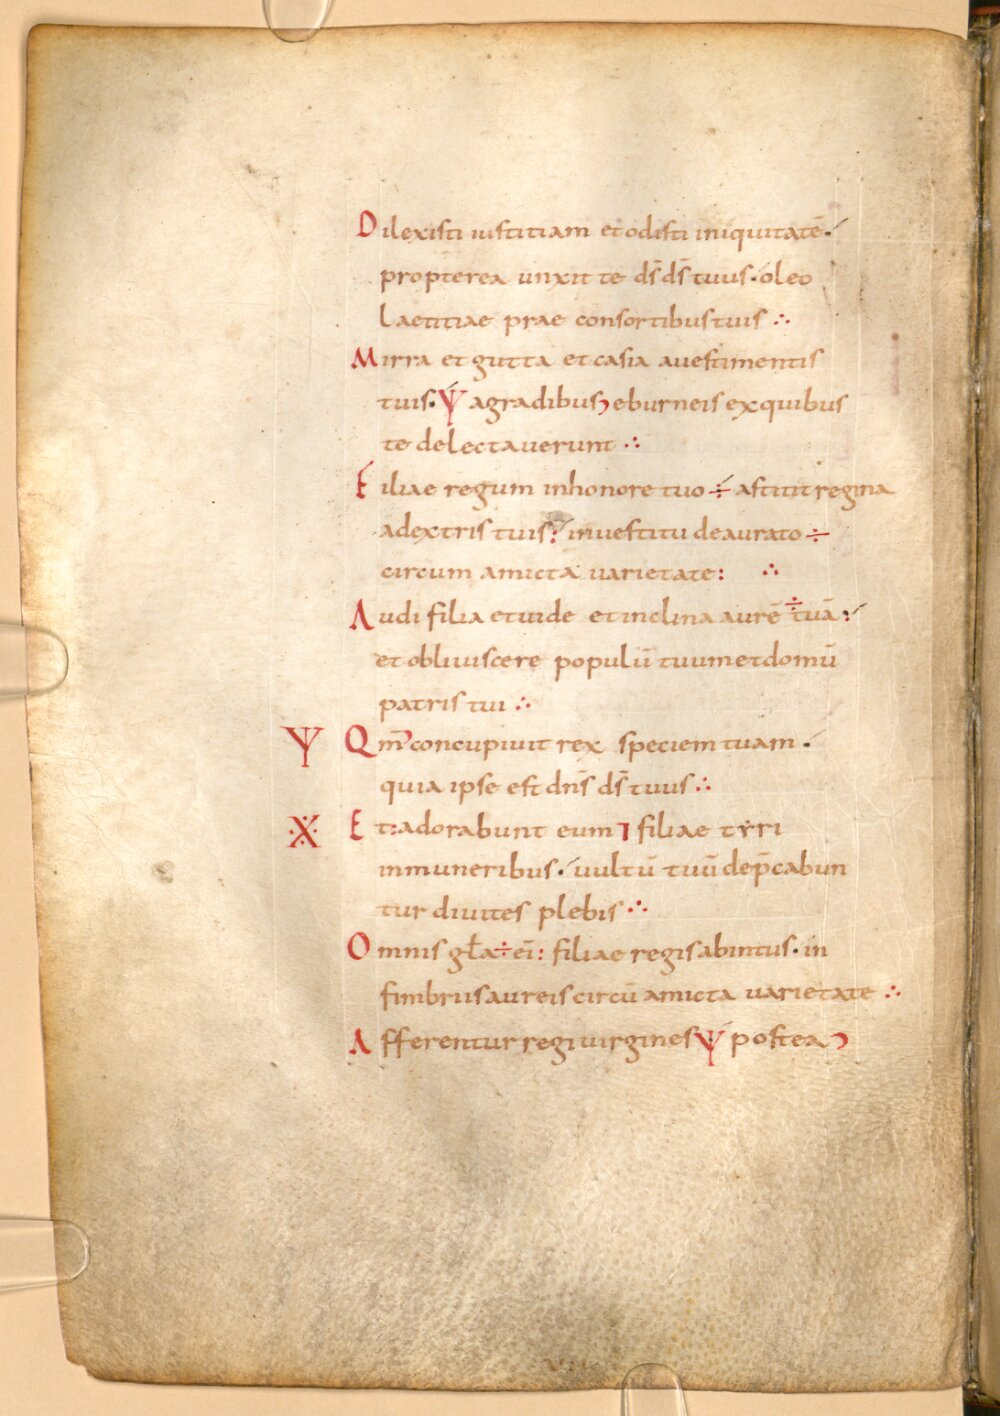 Dilexisti iustitiam et odisti iniquitatē·
propterea unxit te ds̄ ds̄ tuus· oleo
laetitiae prae consortibus tuis ∴
Mirra et gutta et casia a uestimentis
tuis· Ψ a gradibus eburneis ex quibus
te delectauerunt ∴
Filiae regum in honore tuo ÷ astitit regina
a dextris tuis: in uestitu deaurato ÷
circum amicta uarietate: ∴
Audi filia et uide et inclina aurē ÷ tuā:
et obliuiscere populū tuum et domū
patris tui ∴
Ψ Qm̄ concupiuit rex speciem tuam·
quia ipse est dn̄s ds̄ tuus ∴
※ Et: adorabunt eum ⁊ filiae tyri
in muneribus· uultū tuū dep̄cabun
tur diuites plebis ∴
Omnis gła ÷ ei: filiae regis ab intus· in
fimbriis aureis circū amicta uarietate ∴
Afferentur regi uirgines Ψ postea